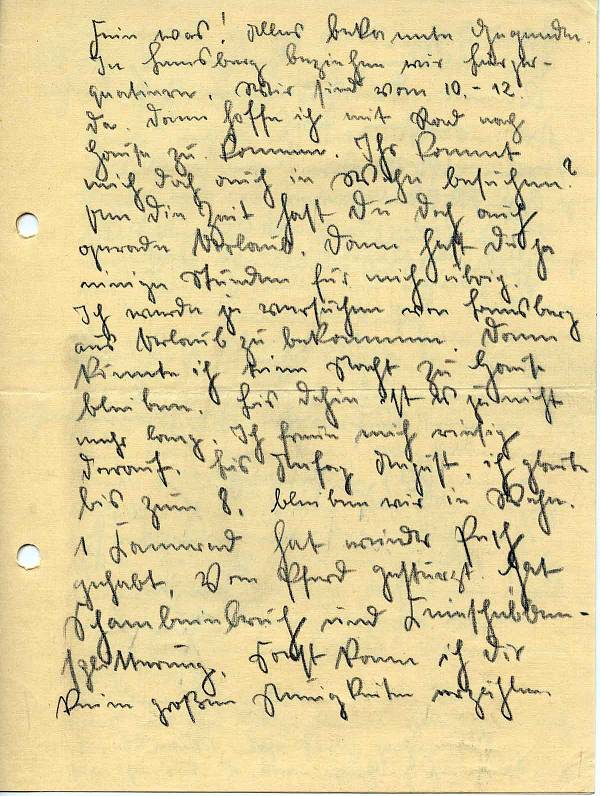 Fein was! Alles bekannte Gegenden.
In Heinsberg beziehen wir Bürger-
quartiere. Wir sind vom 10.-12.
da. Dann hoffe ich mit Rad nach
Hause zu kommen. Ihr kommt
mich doch auch in Wahn besuchen?
Um die Zeit hast Du doch auch
gerade Urlaub. Dann hast Du ja
einige Stunden für mich übrig.
Ich werde ja versuchen von Heinsberg
aus Urlaub zu bekommen. Dann
könnte ich eine Nacht zu Hause
bleiben. Bis dahin ist es ja nicht
mehr lang. Ich freue mich riesig
darauf. Bis Anfang August, ich glaube
bis zum 8. bleiben wir in Wahn.
1 Kamerad hat wieder Pech
gehabt, vom Pferd gestürzt. Hat
Schambeinbruch und Kniescheiben-
splitterung. Sonst kann ich Dir
keine großen Neuigkeiten erzählen.